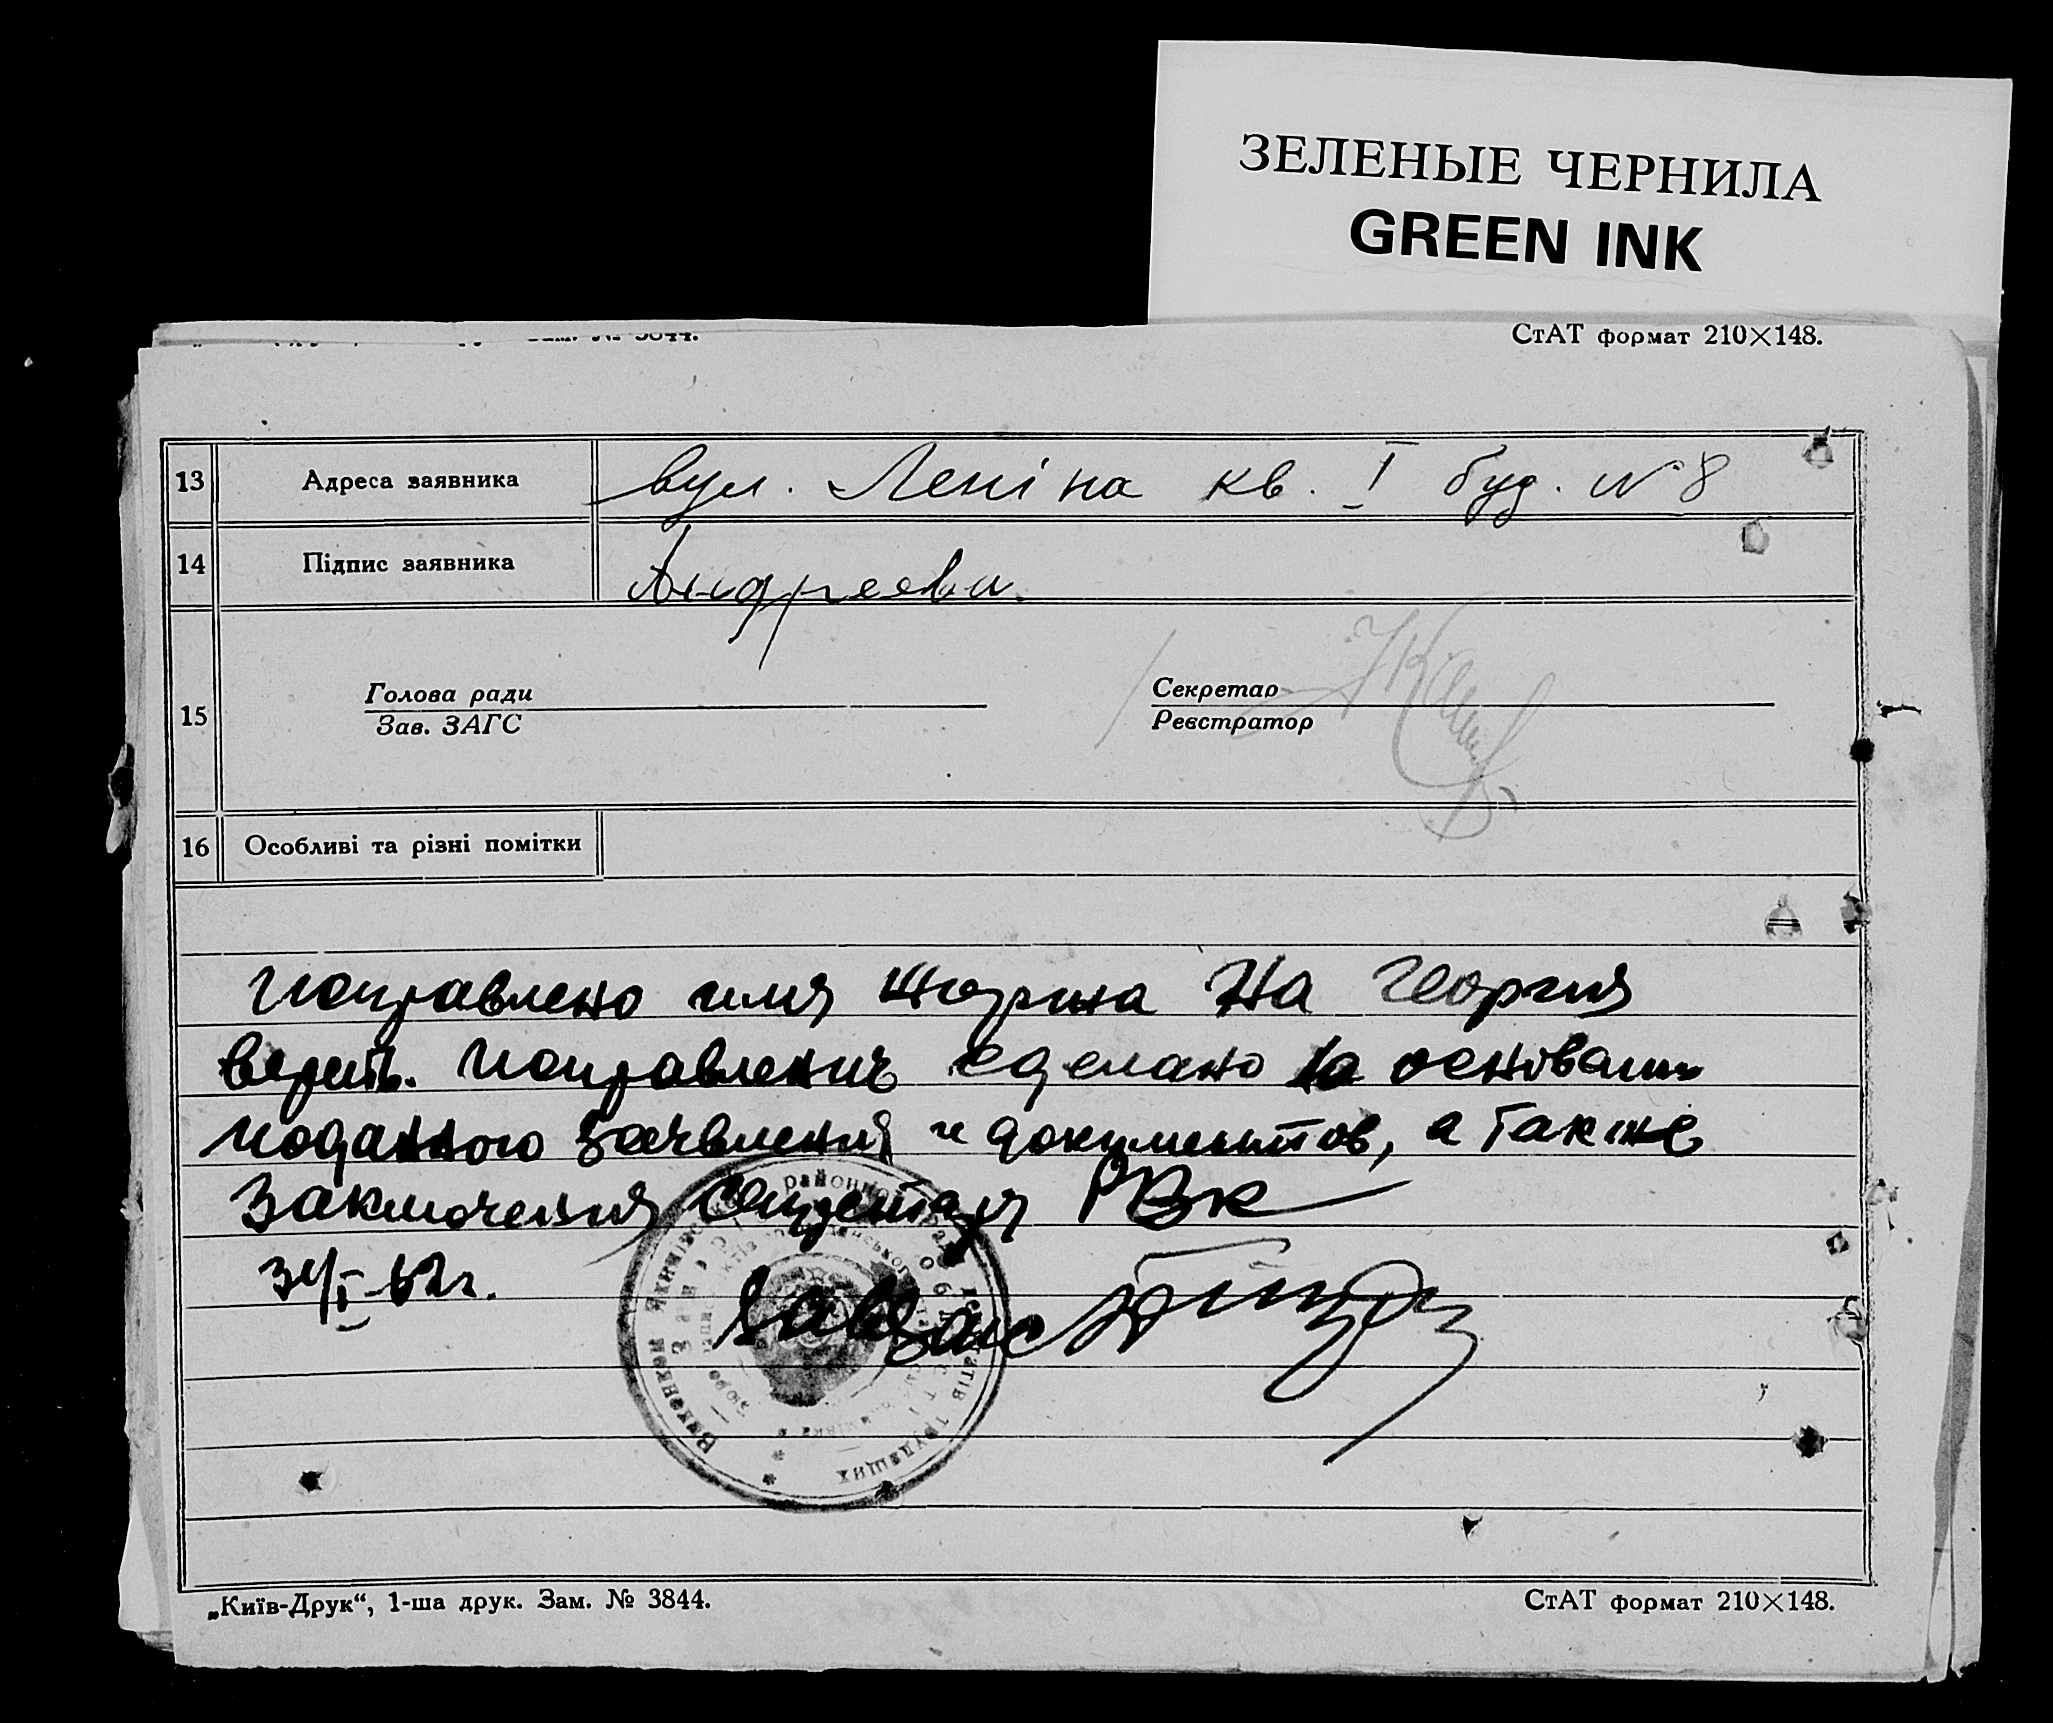 ЗЕЛЕНЫЕ ЧЕРНИЛА
GREEN INK
СтАТ формат 210×148.
13 Адреса заявника вул. Леніна кв. I буд. № 8
14 Підпис заявника Андреева
15 Голова ради
Зав. ЗАГС
Секретар
Реєстратор
16 Особливі та різні помітки
Исправлено имя Жоржа на Георгия
верить. Исправление сделано на основании
поданного заявления и документов, а также
заключения РВК
Зав Загс
„Київ-Друк“, 1-ша друк. Зам. № 3844.
СтАТ формат 210×148.